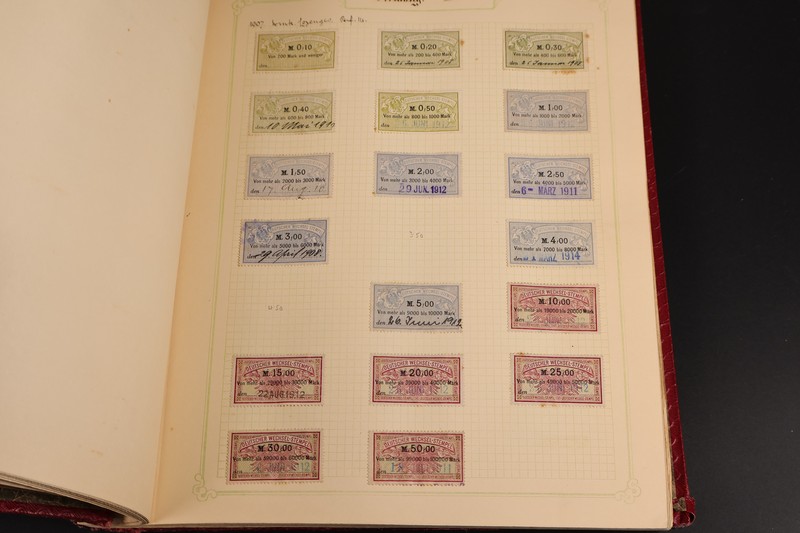 M. 0,10
Von 200 Mark und weniger
den
M. 0,20
Von mehr als 200 bis 400 Mark
den 25 Januar 1908
M. 0,30
Von mehr als 400 bis 600 Mark
den 25 Januar 1908
M. 0,40
Von mehr als 600 bis 800 Mark
den 18 Mai 1910
M. 0,50
Von mehr als 800 bis 1000 Mark
den JUNI 1912
M. 1,00
Von mehr als 1000 bis 2000 Mark
den
M. 1,50
Von mehr als 2000 bis 3000 Mark
den 17. Aug. 10
M. 2,00
Von mehr als 3000 bis 4000 Mark
den 29 JUN. 1912
M. 2,50
Von mehr als 4000 bis 5000 Mark
den 6 MÄRZ 1911
M. 3,00
Von mehr als 5000 bis 6000 Mark
den 29 April 1908.
3.50
M. 4,00
Von mehr als 7000 bis 8000 Mark
den MÄRZ 1914
4.50
M. 5,00
Von mehr als 9000 bis 10000 Mark
den 26. Juni 1912
DEUTSCHER WECHSEL-STEMPEL
M. 10,00
Von mehr als 10000 bis 20000 Mark
DEUTSCHER WECHSEL-STEMPEL
M. 15,00
Von mehr als 20000 bis 30000 Mark
22 AUG 1912
DEUTSCHER WECHSEL-STEMPEL
M. 20,00
Von mehr als 30000 bis 40000 Mark
DEUTSCHER WECHSEL-STEMPEL
M. 25,00
Von mehr als 40000 bis 50000 Mark
DEUTSCHER WECHSEL-STEMPEL
M. 30,00
den
DEUTSCHER WECHSEL-STEMPEL
M. 50,00
den